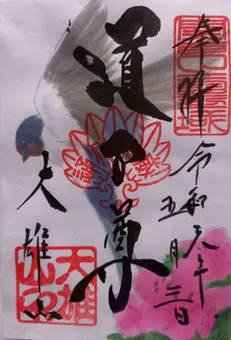 奉拝
令和元年
五月三日
道了尊
大雄山